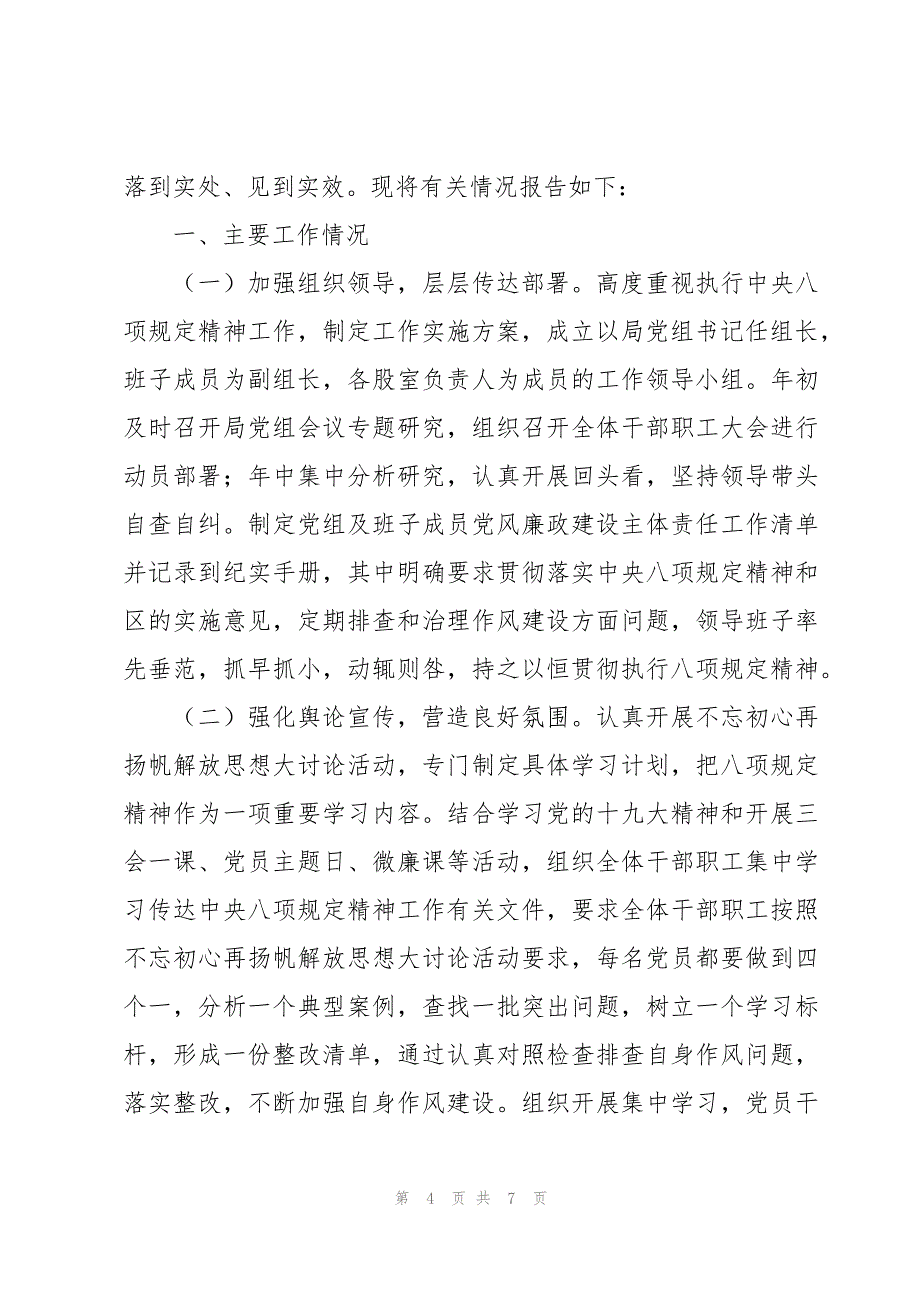 落到实处、见到实效。现将有关情况报告如下：
一、主要工作情况
（一）加强组织领导，层层传达部署。高度重视执行中央八
项规定精神工作，制定工作实施方案，成立以局党组书记任组长，
班子成员为副组长，各股室负责人为成员的工作领导小组。年初
及时召开局党组会议专题研究，组织召开全体干部职工大会进行
动员部署；年中集中分析研究，认真开展回头看，坚持领导带头
自查自纠。制定党组及班子成员党风廉政建设主体责任工作清单
并记录到纪实手册，其中明确要求贯彻落实中央八项规定精神和
区的实施意见，定期排查和治理作风建设方面问题，领导班子率
先垂范，抓早抓小，动辄则咎，持之以恒贯彻执行八项规定精神。
（二）强化舆论宣传，营造良好氛围。认真开展不忘初心再
扬帆解放思想大讨论活动，专门制定具体学习计划，把八项规定
精神作为一项重要学习内容。结合学习党的十九大精神和开展三
会一课、党员主题日、微廉课等活动，组织全体干部职工集中学
习传达中央八项规定精神工作有关文件，要求全体干部职工按照
不忘初心再扬帆解放思想大讨论活动要求，每名党员都要做到四
个一，分析一个典型案例，查找一批突出问题，树立一个学习标
杆，形成一份整改清单，通过认真对照检查排查自身作风问题，
落实整改，不断加强自身作风建设。组织开展集中学习，党员干
第 4 页 共 7 页